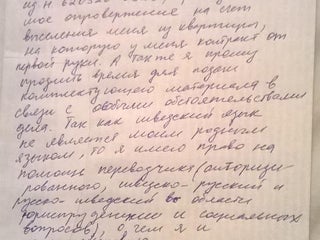 мое опровержение на счет
выселения меня из квартиры,
на которую у меня контракт от
первой руки. А также я прошу
продлить время для подачи
комплектующего материала в
связи с особыми обстоятельствами
дела. Так как шведский язык
не является моим родным
языком, то я имею право на
помощь переводчика (авторизи-
рованного, шведско-русский и
русско-шведский во области
юриспруденции и социальных
вопросов), о чем я и